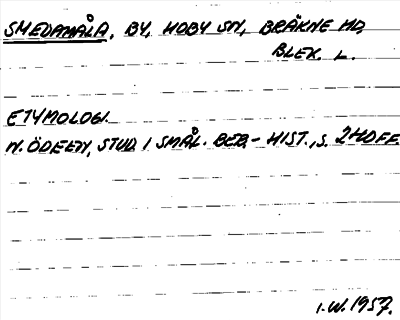 SMEDAMÅLA, BY, HOBY SN, BRÄKNE HD,
BLEK. L.
ETYMOLOGI.
N. ÖDEEN, STUD. I SMÅL. BEB.- HIST., S. 240FF.
I.W. 1957.